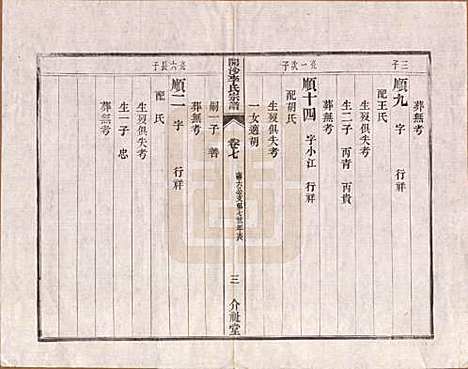 葬無考
三子
順九 字 行祥
配王氏
生歿俱失考
生二子 丙青 丙貴
葬無考
克一次子
順十四 字小江 行祥
配胡氏
生歿俱失考
一女適胡
開沙李氏宗譜
卷七
三
介祉堂
嗣一子 善
葬無考
克六長子
順二 字 行祥
配 氏
生歿俱失考
生一子 忠
葬無考